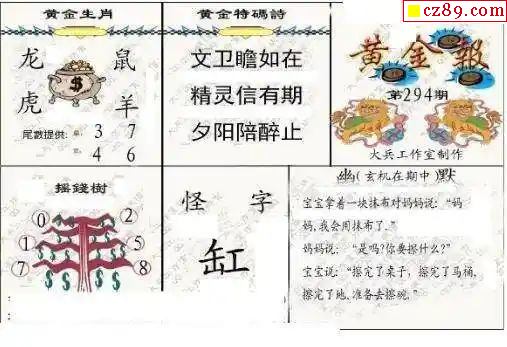 cz89.com
黄金生肖
龙 鼠
虎 羊
$
尾數提供: 單: 3 7
4 6
黄金特碼詩
文卫瞻如在
精灵信有期
夕阳陪醉止
黄金報
第294期
大兵工作室制作
摇錢樹
0 2
1 5
7 8
怪 字
缸
幽(玄机在期中)默
宝宝拿着一块抹布对妈妈说: “妈
妈,我会用抹布了.”
妈妈说: “是吗?你要擦什么?”
宝宝说: “擦完了桌子，擦完了马桶,
擦完了地、准备去擦碗.”